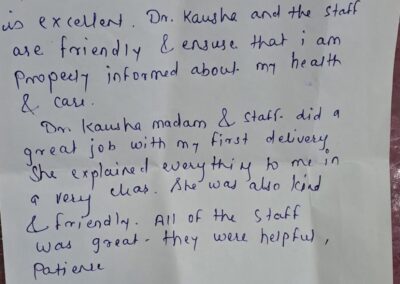 is excellent. Dr. Kausha and the staff
are friendly & ensuse that i am
properly informed about my health
& care.
Dr. Kausha madam & staff did a
great job with my first delivery.
She explained everything to me in
a very clear. She was also kind
& friendly. All of the staff
was great. they were helpful,
Patience